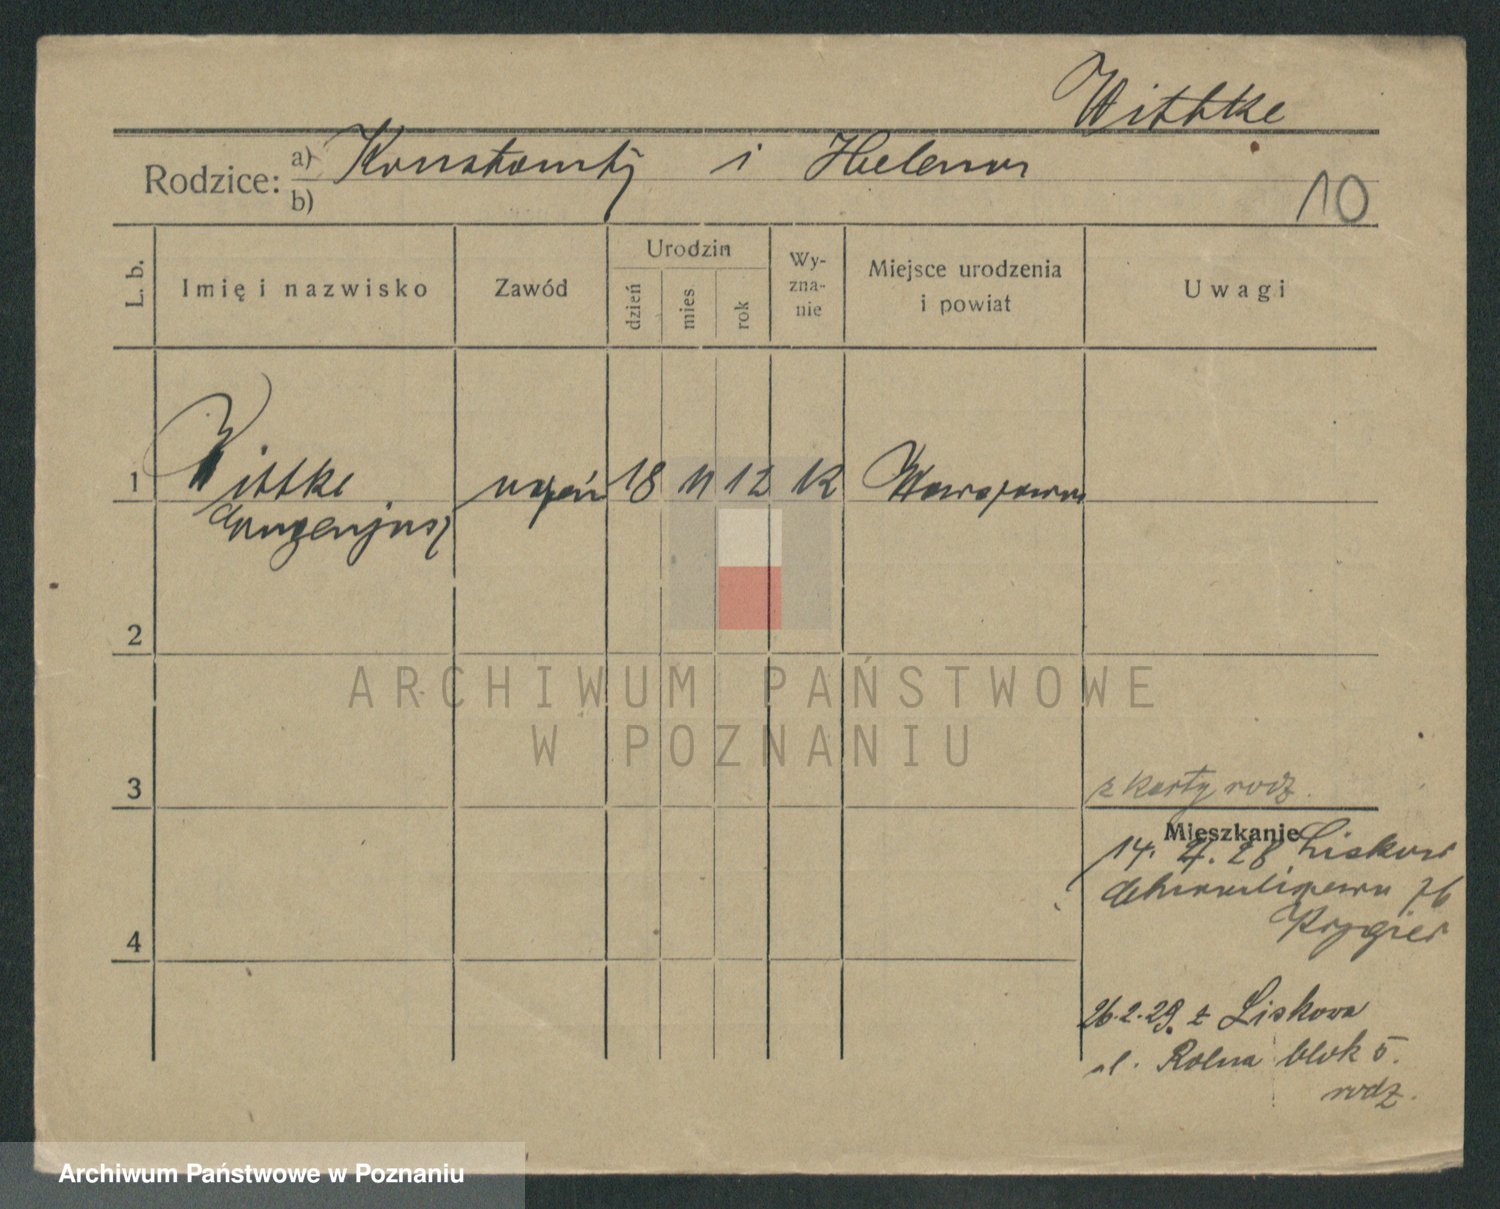 Wittke
Rodzice: a) Konstanty i Helena
b)
10
L. b.
Imię i nazwisko
Zawód
Urodzin
dzień
mies
rok
Wy-
zna-
nie
Miejsce urodzenia
i powiat
Uwagi
1 Wittke uczeń 18 11 12 k Warszawa
2
ARCHIWUM PAŃSTWOWE
W POZNANIU
3
z karty rodz.
Mieszkanie
14. 4. 28
76
4
26.2.29. z Liskowa
ul. Rolna blok 5.
rodz.
Archiwum Państwowe w Poznaniu